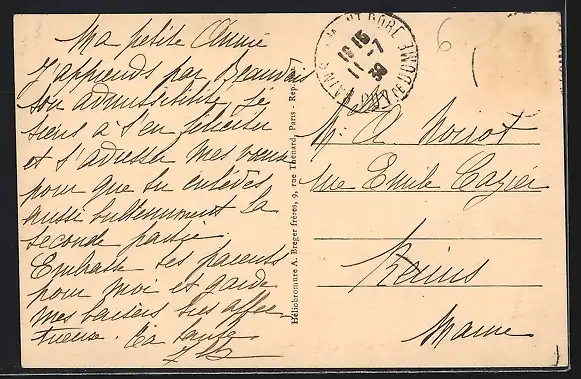 Ma petite Annie
J'apprends par Beauvais
ton admissibilité, je
tiens à t'en féliciter
et t'adresser mes vœux
pour que tu enlèves
aussi brillamment la
seconde partie.
Embrasse tes parents
pour moi et garde
mes baisers très affec
tueux. Ta tante
Héliobromure A. Breger frères, 9, rue Thénard, Paris - Rep.
PUY DE DOME
16 15
11 -7
39
6
A. Noirot
rue Emile Cazier
Reims
Marne